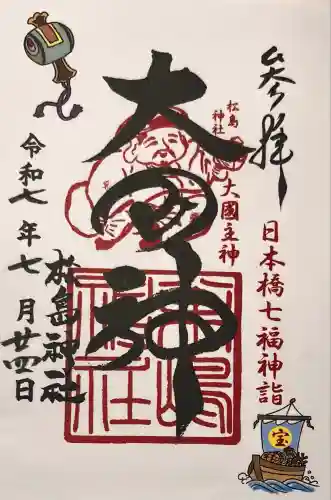 奉拝
日本橋七福神詣
宝
松島神社
大國主神
大国神
松島神社
松島神社
令和七年七月廿四日